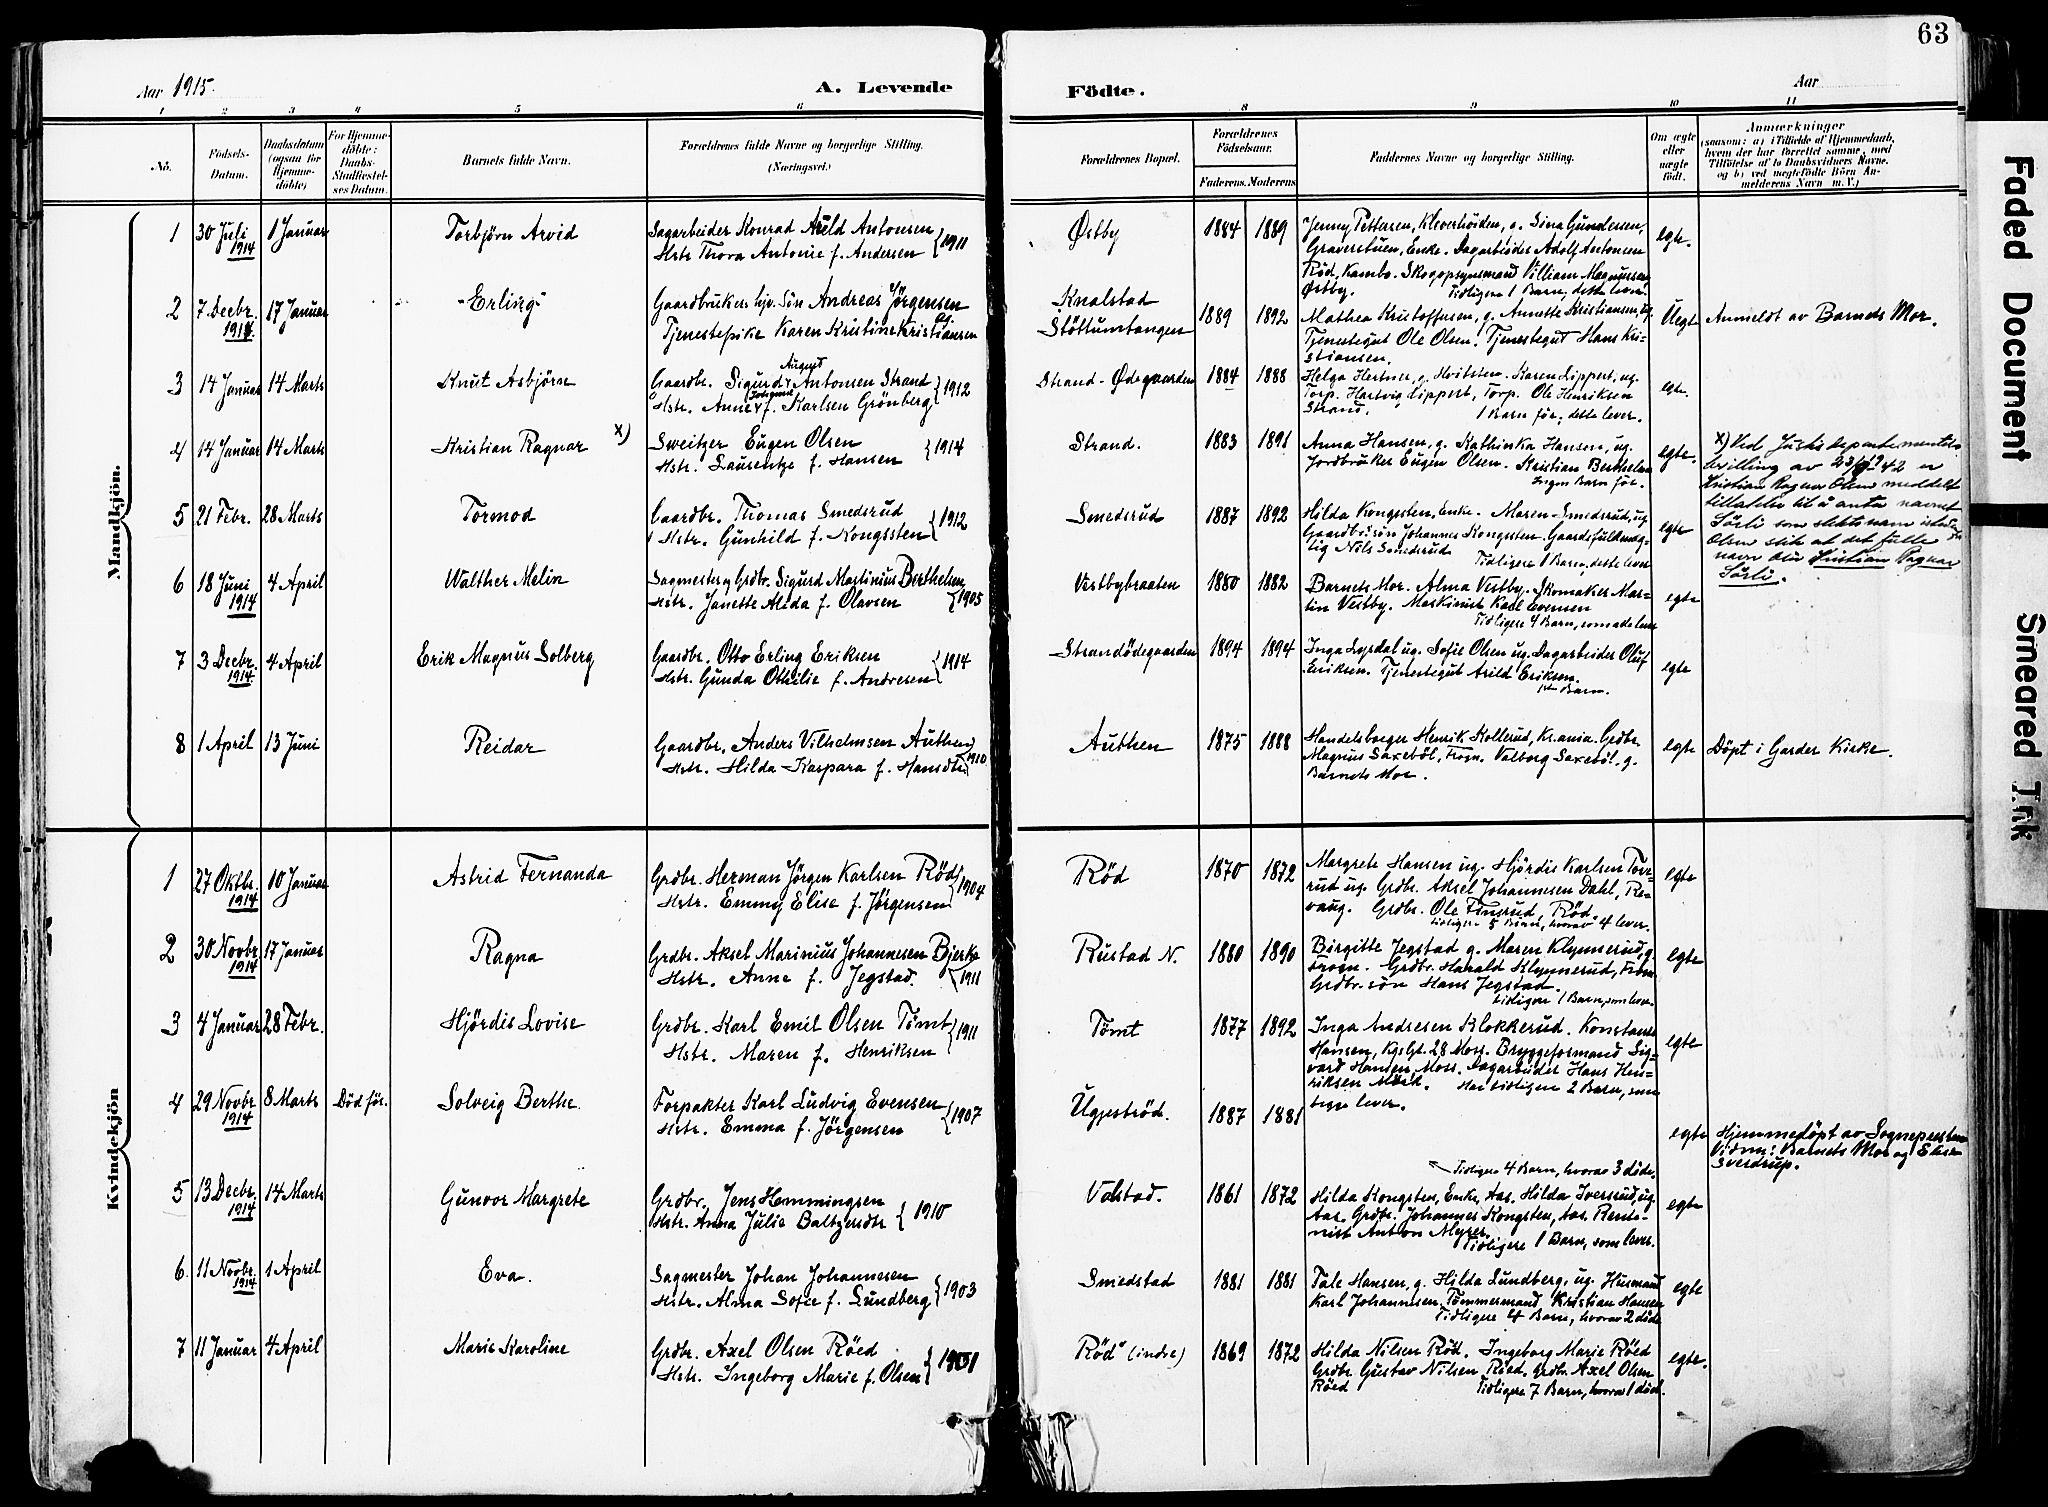 63
Aar 1915.
A. Levende Fødte.
Aar
1 2 3 4 5 6 8 9 10 11
No.
Fødsels-
Datum.
Daabsdatum
(ogsaa for
Hjemme-
døbte)
For Hjemme-
døbte:
Daabs-
Stadfæstel-
ses Datum.
Barnets fulde Navn.
Forældrenes fulde Navne og borgerlige Stilling.
(Næringsvei.)
Forældrenes Bopæl.
Forældrenes
Fødselsaar.
Faderens. Moderens
Faddernes Navne og borgerlige Stilling.
Om ægte
eller
uægte
født.
Anmærkninger
(saasom: a) i Tilfælde af Hjemmedaab,
hvem der har forrettet samme, med
Tilføielse af to Daabsvidners Navne.
og b) ved uægtefødte Börn An-
melderens Navn m. V.)
Mandkjön.
1 30 Juli 1914 1 Januar
Torbjörn Arvid
Sagarbeider Konrad Arild Antonsen
Hstr. Thora Antonie f. Andersen 1911
Østby 1884 1889
Jenny Pettersen, Kleverhöiden, g. Sina Gundersen,
Graverstuen, Enke. Dagarbeider Adolf Antonsen
Röd, Kambo. Skogopsynsmand Villiam Magnussen
Østby. Tidligere 1 Barn, dette lever.
egte.
2 7 Decbr. 1914. 17 Januar
Erling
Gaardbrukers hjv. Sön Andreas Jörgensen
Tjenestepike Karen Kristine Kristiansen
Knalstad
Stöttumtangen 1889 1892
Mathea Kristoffersen, g. Annette Kristiansen, ug.
Tjenestegut Ole Olsen. Tjenestegut Hans Kri-
stiansen.
Uegte
Anmeldt av Barnets Mor.
3 14 Januar 14 Marts
Knut Asbjörn
August
Gaardbr. Sigurd Antonsen Strand
Hstr. Anne f. Karlsen Grönberg 1912
Strand-Ödegaarden 1884 1888
Helga Hertner, g. Hvitsten. Karen Lippert, ug.
Torp. Hartvig Lippert, Torp. Ole Henriksen
Strand. 1 Barn för; dette lever.
egte.
4 14 Januar 14 Marts
Kristian Ragnar x)
Sveitzer Eugen Olsen
Hstr. Laurentze f. Hansen 1914
Strand. 1883 1891
Anna Hansen, g. Kathinka Hansen, ug.
Jordbruker Eugen Olsen. Kristian Berthelsen
Ingen Barn för.
egte.
x) Ved Justisdepartementets
bevilling av 1942 er
Kristian Ragnar Olsen meddelt
tillatelse til å anta navnet
Sörli som slektsnavn istedenfor
Olsen slik at det fulle
navn blir Kristian Ragnar
Sörli.
5 21 Febr. 28 Marts
Tormod
Gaardbr. Thomas Smedsrud
Hstr. Gunhild f. Kongssten 1912
Smedsrud 1887 1892
Hilda Kongsten, Enke. Maren Smedsrud, ug.
Gaardbr.sön Johannes Kongsten. Gaardsfuldmæg-
tig Nils Smedsrud
Tidligere 1 Barn, dette lever
egte
6 18 Juni 1914 4 April
Walther Melin
Sagmester og Grdbr. Sigurd Martinius Berthelsen
Hstr. Janette Alida f. Olavsen 1905
Vestbybraaten 1880 1882
Barnets Mor. Alma Vestby. Skomaker Mar-
tin Vestby. Maskinist Karl Evensen
Tidligere 4 Barn, som ade lever
egte
7 3 Decbr. 1914. 4 April
Erik Magnus Solberg
Gaardbr. Otto Erling Eriksen
Hstr. Gunda Othilie f. Andresen 1914
Strandödegaarden 1894 1894
Inga Lysdal ug. Sofie Olsen ug. Dagarbeider Oluf
Eriksen. Tjenestegut Arild Eriksen.
1ste Barn.
egte
8 1 April 13 Juni
Reidar
Gaardbr. Anders Vilhelmsen Authen
Hstr. Hilda Kaspara f. Hansdtr. 1910
Authen 1875 1888
Handelsborger Henrik Kollerud, Kr.ania. Grdbr.
Magnus Saxeböl, Frogn. Valborg Saxeböl. g.
Barnets Mor.
egte
Döpt i Garder Kirke.
Kvindekjön
1 27 Oktbr. 1914 10 Januar
Astrid Fernanda
Grdbr. Herman Jörgen Karlsen Röd
Hstr. Emmy Elise f. Jörgensen 1904
Röd 1870 1872
Margrete Hansen ug. Hjördis Karlsen Tors-
rud ug. Grdbr. Aksel Johannesen Dahl, Re-
vaug. Grdbr. Ole Finsrud, Röd.
tidligere 5 Börn, hvorav 4 lever.
egte
2 30 Novbr 1914 17 Januar
Ragna
Grdbr. Aksel Marinius Johannesen Bjerke
Hstr. Anne f. Jegstad. 1911
Rustad N. 1880 1890
Birgitte Jegstad g. Maren Klynnerud, g.
Frogn. Grdbr. Harald Klynnerud, Frogn.
Grdbr.sön Hans Jegstad.
tidligere 1 Barn, som lever.
egte
3 4 Januar 28 Febr.
Hjördis Lovise
Grdbr. Karl Emil Olsen Tömt
Hstr. Maren f. Henriksen 1911
Tömt 1877 1892
Inga Andresen Klokkerud. Konstance
Hansen, Kgsgt. 28 Moss. Bryggeformand Sig-
vard Hansen, Moss. Dagarbeider Hans Hen-
riksen Mörk. Har tidligere 2 Barn, som
begge lever.
egte
4 29 Novbr 1914 8 Marts Död för.
Solveig Berthe.
Forpakter Karl Ludvig Evensen
Hstr. Emma f. Jörgensen 1907
Uggeströd. 1887 1881
Tidligere 4 Barn, hvorav 3 döde.
egte
Hjemmedöpt av Sognepresten
Vidner: Barnets Mor og
Sverdrup.
5 13 Decbr. 1914 14 Marts
Gunvor Margrete
Grdbr. Jens Hemmingsen
Hstr. Anna Julie Baltzersdtr 1910
Volstad. 1861 1872
Hilda Kongsten, Enke, Aas. Hilda Iversrud, ug.
Aas. Grdbr. Johannes Kongsten, Aas. Rente-
nist Anton Myrer.
Tidligere 1 Barn, som lever.
egte
6. 11 Novbr. 1914 1 April
Eva.
Sagmester Johan Johannesen
Hstr. Alma Sofie f. Lundberg 1903
Smedstad 1881 1881
Tale Hansen, g. Hilda Lundberg, ug. Husmand
Karl Johannsen. Tømmermand Kristian Hansen
Tidligere 4 Barn, hvorav 2 döde
egte
7 11 Januar 4 April
Marie Karoline
Grdbr. Axel Olsen Röed
Hstr. Ingeborg Marie f. Olsen 1901
Röd (indre) 1869 1872
Hilda Nilsen Röd. Ingeborg Marie Röed
Grdbr. Gustav Nilsen Röed. Grdbr. Axel Olsen
Röed Tidligere 7 Barn, hvorav 1 död.
egte.
Faded Document
Smeared Ink